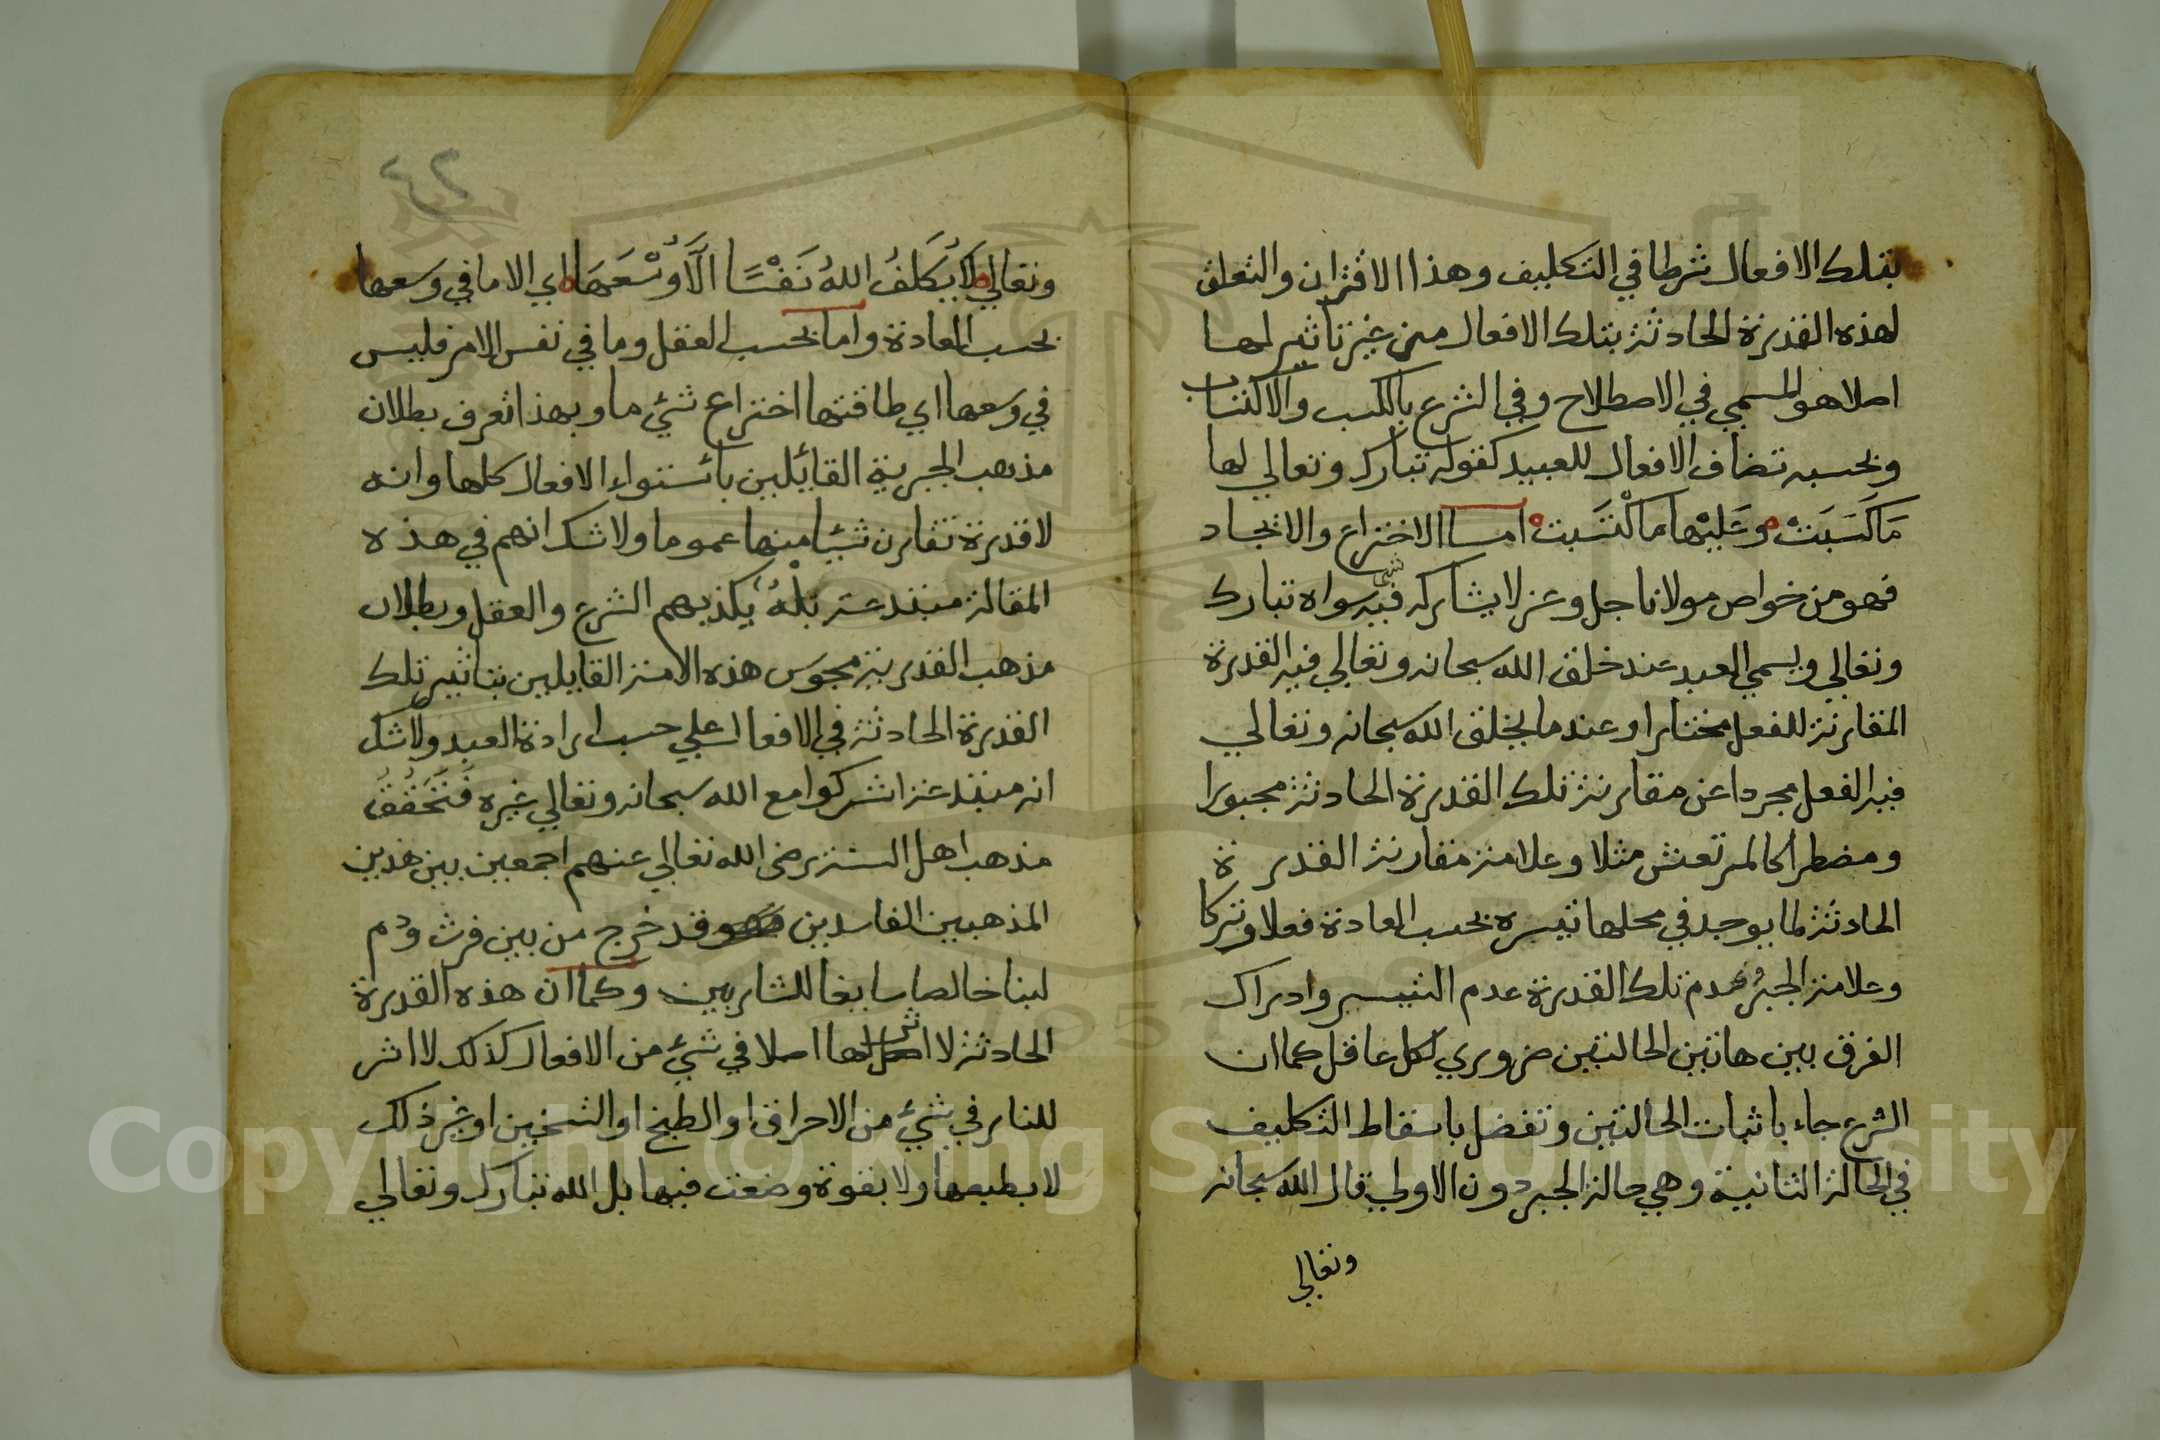 بتلك الافعال شرطا في التكليف وهذا الاقتران والتعلق
لهذه القدرة الحادثة بتلك الافعال من غير تاثير لها
اصلا هو المسمي في الاصطلاح وفي الشرع بالكسب والاكتساب
وبحسبه تضاف الافعال للعبيد كقوله تبارك وتعالي لها
مَا كَسَبَتْ وعَليْها مَا كْتَسَبت امـا الاختراع والايجاد
فهو من خواص مولانا جل وعز لا يشاركه فيه شي سواه تبارك
وتعالي ويسمي العبد عند خلق الله سبحانه وتعالي فيه القدرة
المقارنة للفعل مختارا وعند ما يخلق الله سبحانه وتعالي
فيه الفعل مجردا عن مقارنة تلك القدرة الحادثة مجبورا
ومضطرا كالمرتعش مثلا وعلامة مقارنة القدرة
الحادثة لما يوجد في محلها تيسره بحسب العادة فعلا وتركا
وعلامة الجبر عدم تلك القدرة عدم التيسير وادراك
الفرق بين هاتين الحالتين ضروري لكل عاقل كما ان
الشرع جاء باثبات الحالتين وتفضل باسقاط التكليف
في الحالة الثانية وهي حالة الجبر دون الاولي قال الله سبحانه
وتعالي
٤٢
وتعالي لَا يُكَلفُ اللهُ نَفْسًا الَّا وُسْعَهَا اي الا ما في وسعها
بحسب العادة واما بحسب العقل وما في نفس الامر فليس
في وسعها اي طاقتها اختراع شئ ما وبهذا تعرف بطلان
مذهب الجبرية القائلين باستواء الافعال كلها وانه
لا قدرة تقارن شيئا منها عموما ولا شك انهم في هذه
المقالة مبتدعة بُلْهُ يكذبهم الشرع والعقل وبطلان
مذهب القدرية مجوس هذه الامة القايلين بتاثير تلك
القدرة الحادثة في الافعال علي حسب ارادة العبد ولا شك
انه مبتدعة اشركوا مع الله سبحانه وتعالي غيره فتَحَقُقُ
مذهب اهل السنة رضى الله تعالي عنهم اجمعين بين هذين
المذهبين الفاسدين فهو قد خرج من بين فرث ودم
لبنا خالصا سايغا للشاربين وكما ان هذه القدرة
الحادثة لا اثر لها اصلا في شئ من الافعال كذلك لا اثر
للنار في شئ من الاحراق او الطبخ او التسخين او غير ذلك
لا بطبعها ولا بقوة وضعت فيها بل الله تبارك وتعالي
Copyright © King Saud University